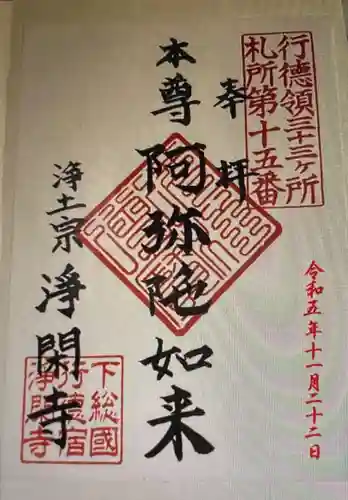 行徳領三十三ヶ所
札所第十五番
奉拝
本尊 阿弥陀如来
浄土宗 浄閑寺
令和五年十一月二十二日
下総國
行徳宿
浄閑寺